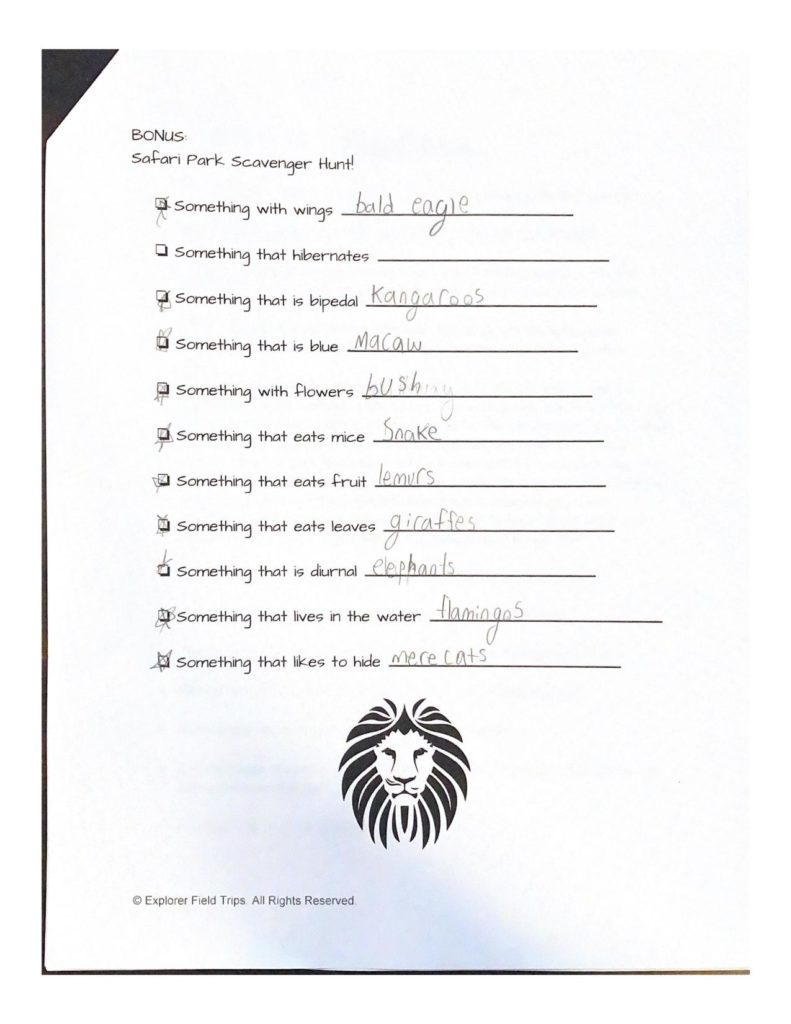 BONUS:
Safari Park Scavenger Hunt!
Something with wings bald eagle
Something that hibernates
Something that is bipedal Kangaroos
Something that is blue Macaw
Something with flowers
Something that eats mice Snake
Something that eats fruit lemurs
Something that eats leaves giraffes
Something that is diurnal elephants
Something that lives in the water flamingos
Something that likes to hide mere cats
© Explorer Field Trips. All Rights Reserved.